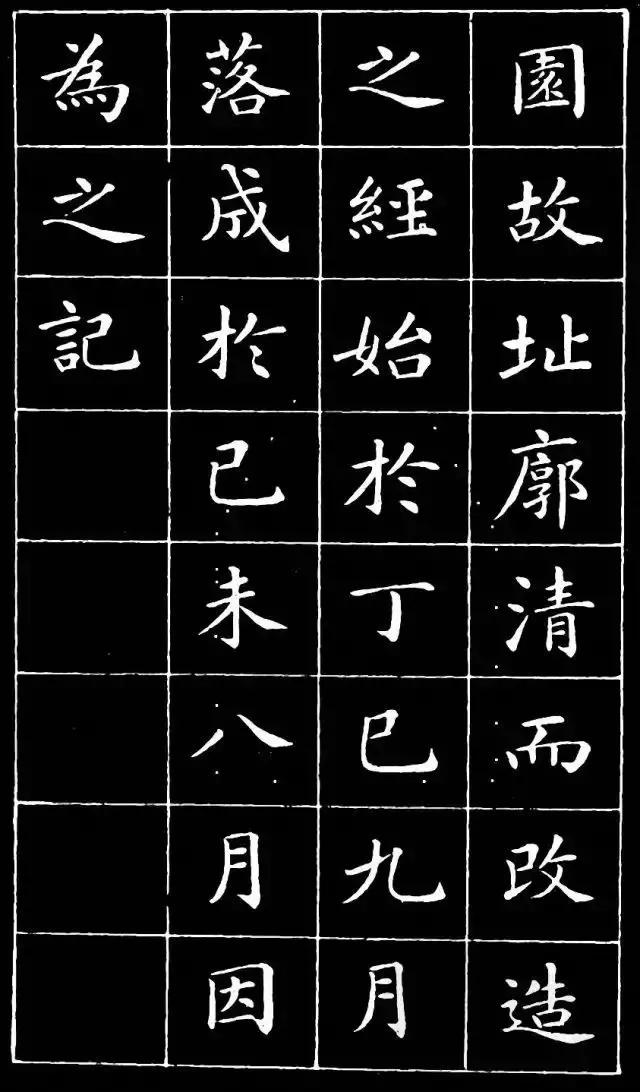 園故址廓清而改造
之經始於丁巳九月
落成於己未八月因
為之記